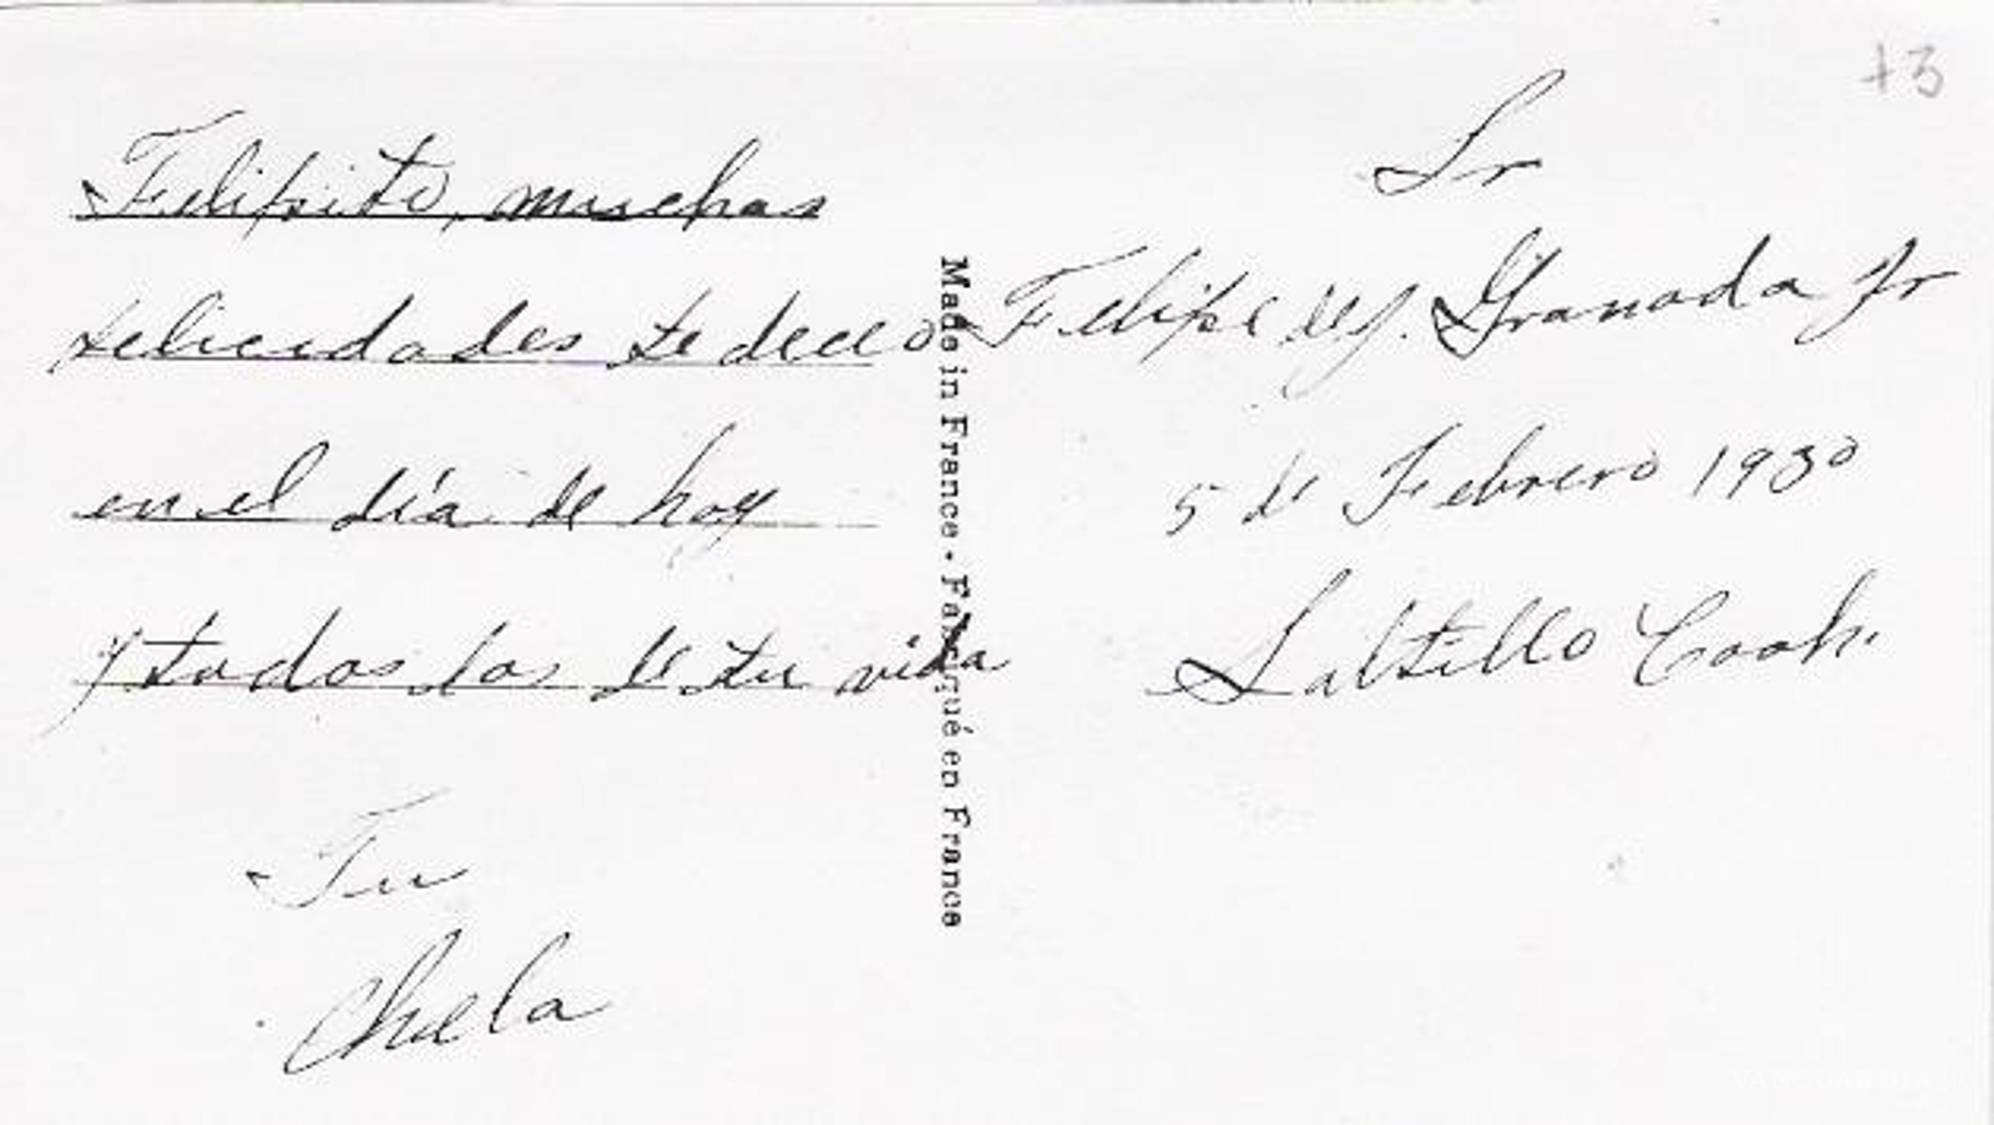 Felipito, muchas
felicidades te deceo
en el día de hoy
y todos los de tu vida
Tu
Chela
Made in France • Fabriqué en France
+3
Sr
Felipe de J. Granada Jr
5 de Febrero 1930
Saltillo Coah.